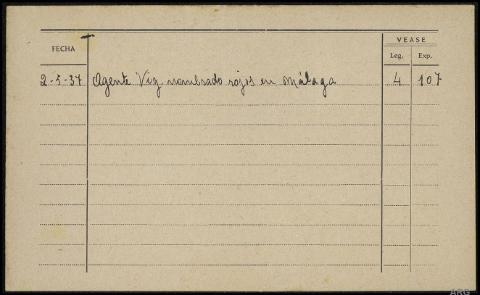 VEASE
FECHA Leg. Exp.
2-5-37 Agente Vig. nombrado rojos en Málaga 4 107
ARG